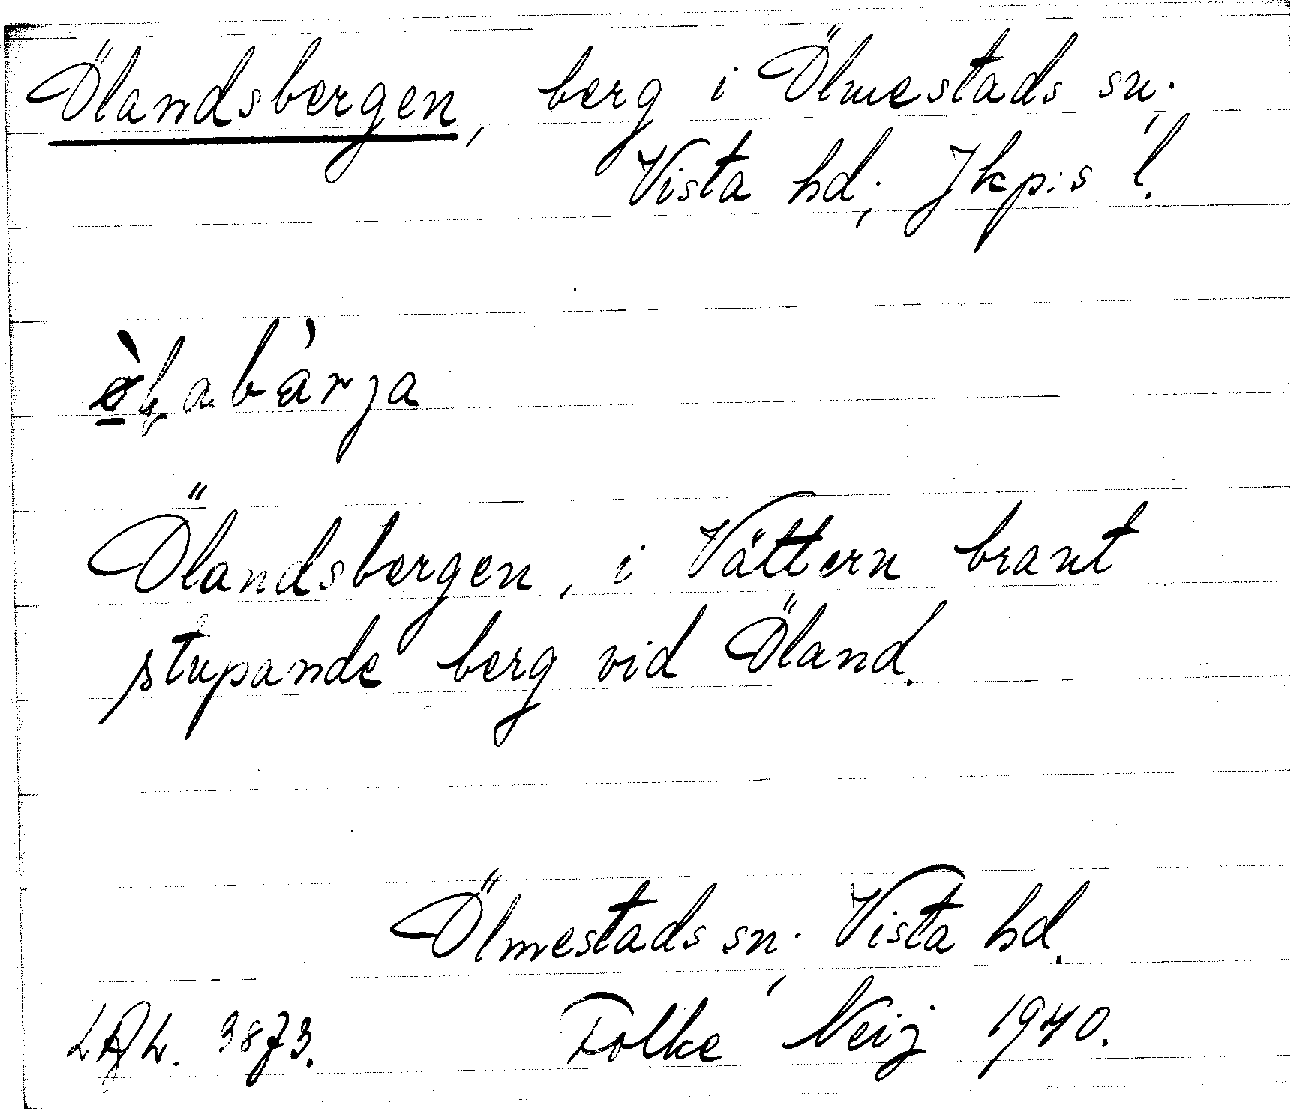 Ölandsbergen, berg i Ölmestads sn.,
Vista hd, Jkp:s l.
Ölandsbergen, i Vättern brant
stupande berg vid Öland.
Ölmestads sn., Vista hd.
Folke Neij 1940.
3873.